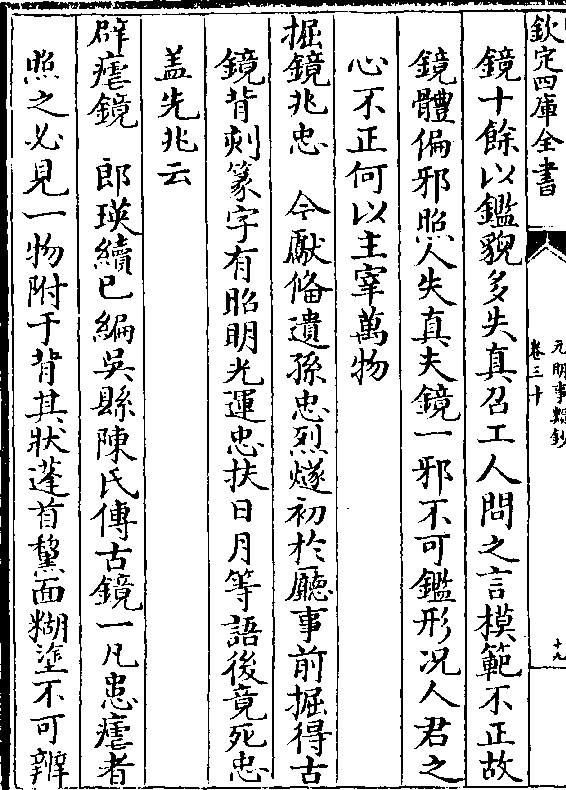 欽定四庫全書
元明事類鈔
卷三十
十九
鏡十餘以鑑貌多失真召工人問之言模範不正故
鏡體偏邪照人失真夫鏡一邪不可鑑形况人君之
心不正何以主宰萬物
掘鏡兆忠　今獻俻遺孫忠烈燧初於廳事前掘得古
鏡背刻篆字有昭明光運忠扶日月等語後竟死忠
盖先兆云
辟瘧鏡　郎瑛續已編吳縣陳氏傳古鏡一凡患瘧者
照之必見一物附于背其狀蓬首黧面糊塗不可辨